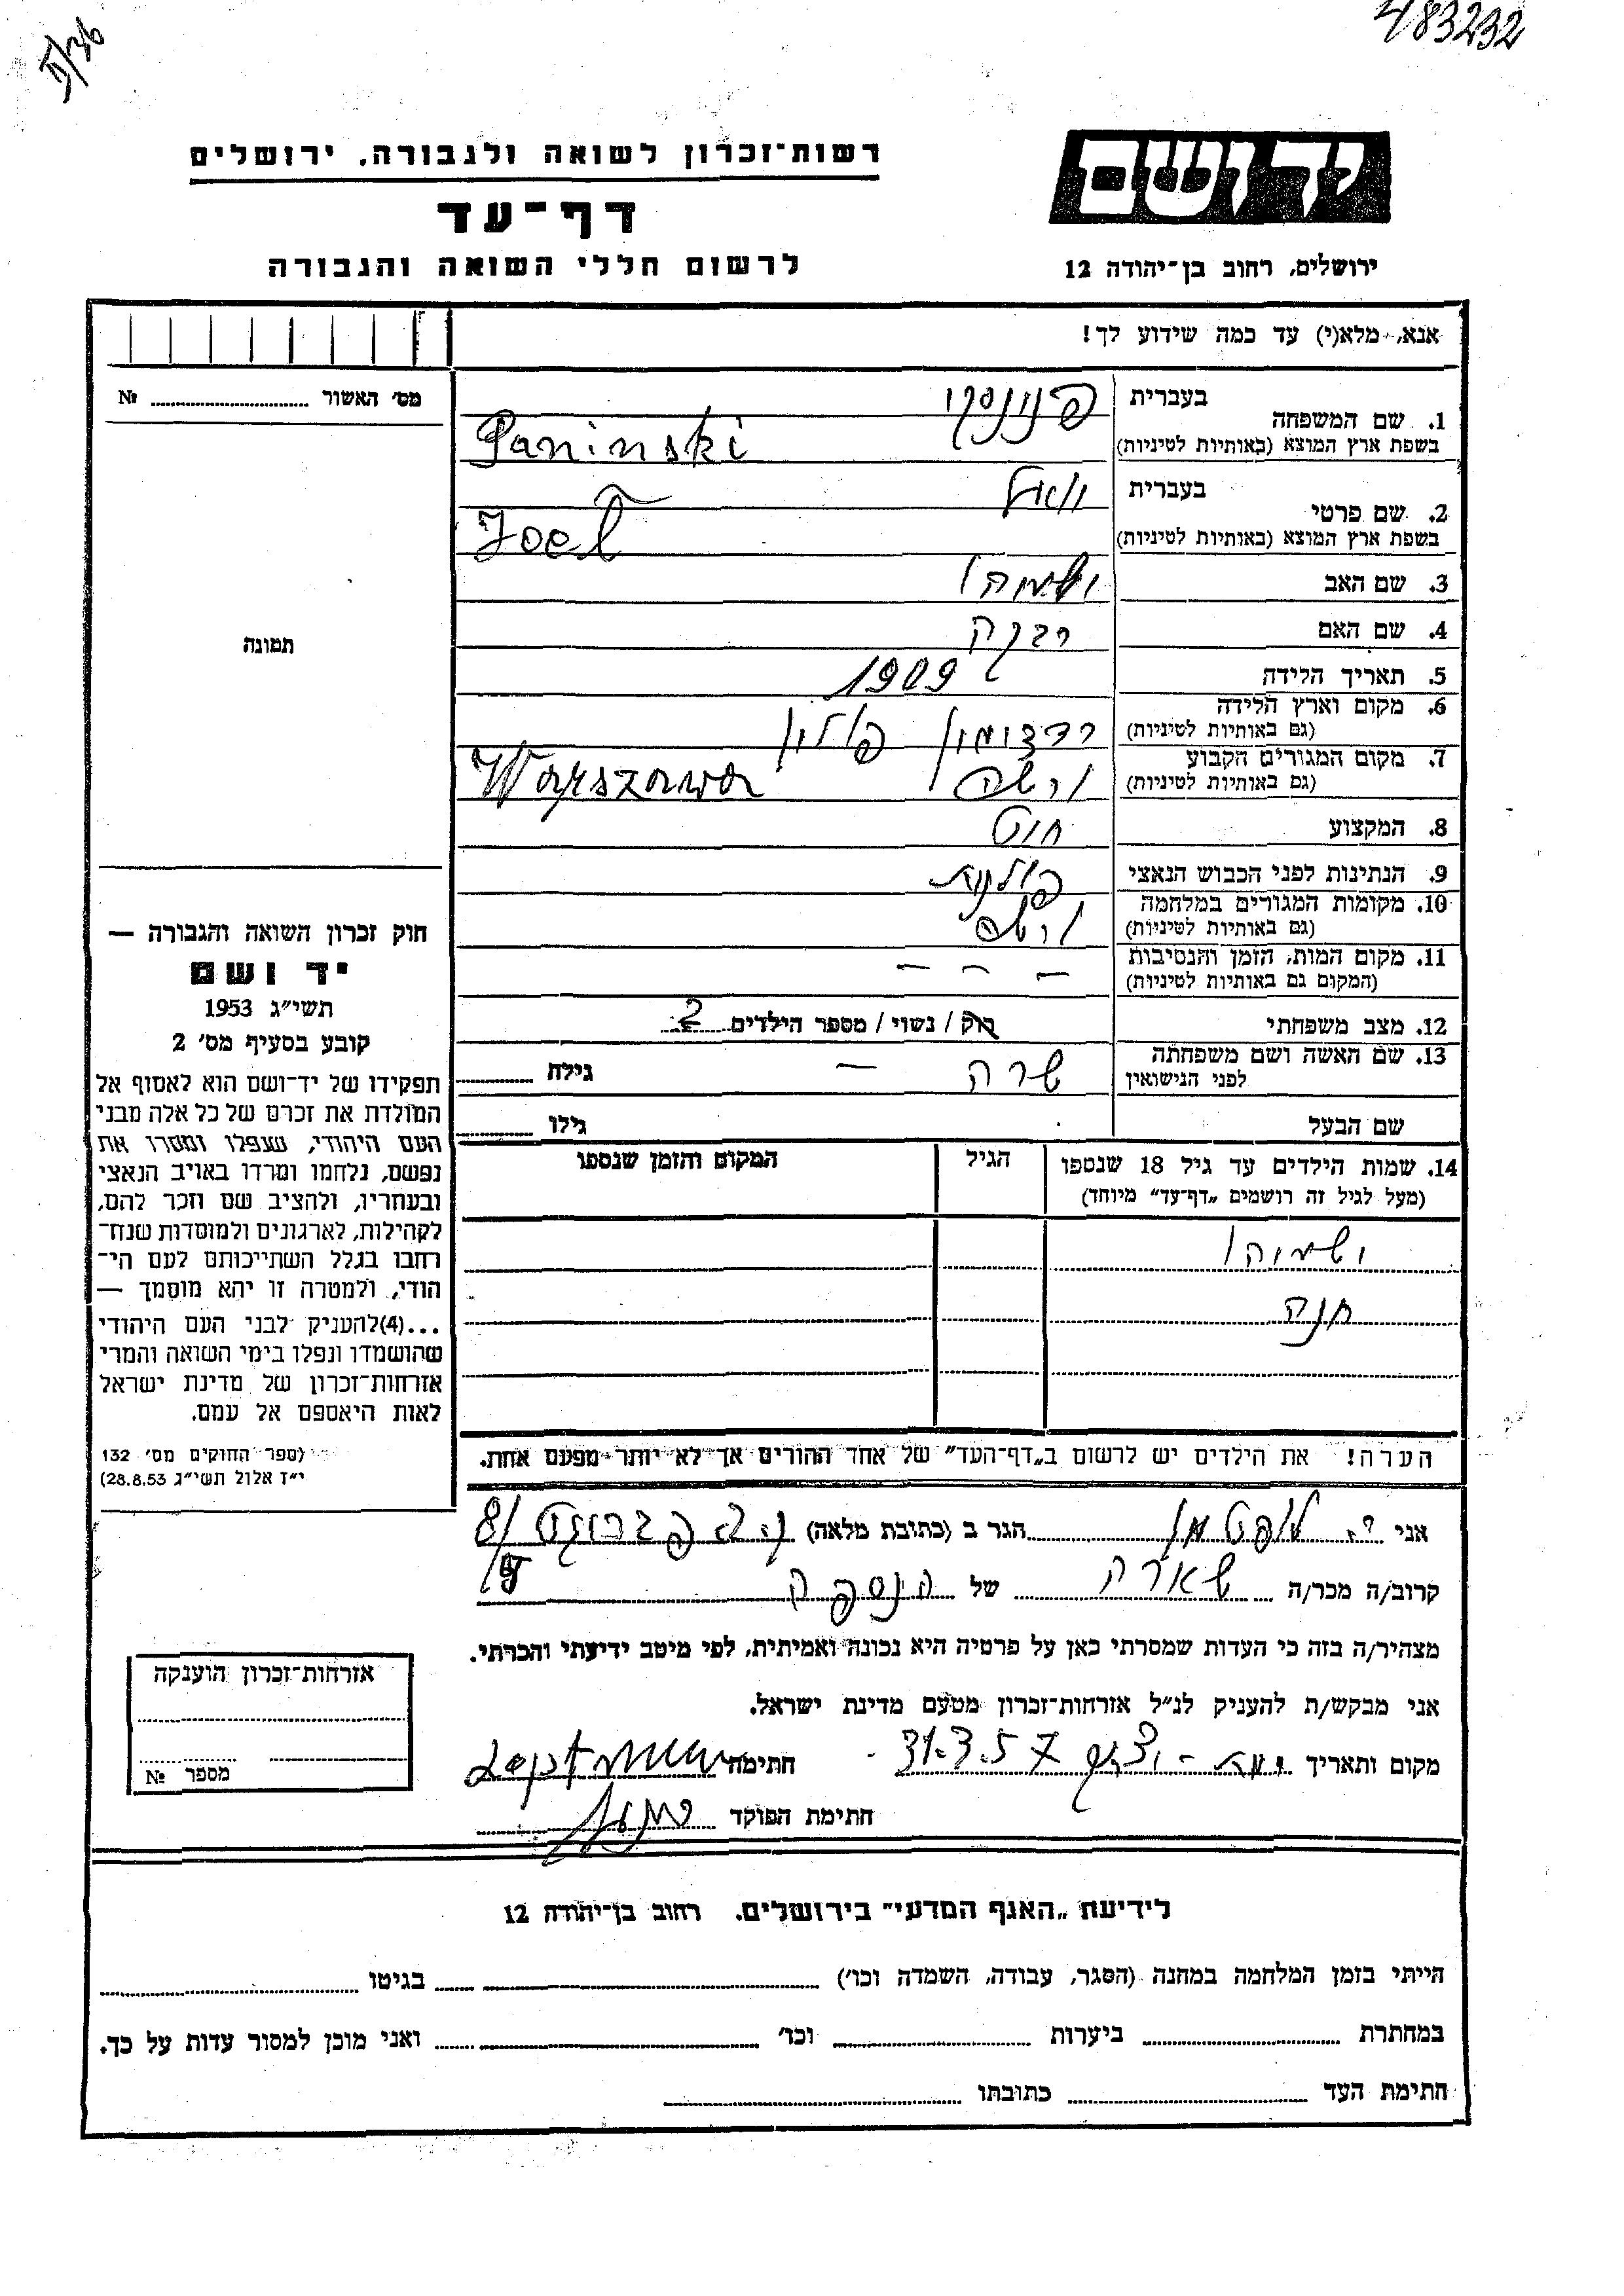 483232
יד ושם
רשות־זכרון לשואה ולגבורה, ירושלים
דף־עד
ירושלים, רחוב בן־יהודה 12
לרשום חללי השואה והגבורה
אנא, מלא(י) עד כמה שידוע לך!
מס׳ האשור № 
תמונה
1. שם המשפחה
בעברית פנינסקי
בשפת ארץ המוצא (באותיות לטיניות) Paninski
2. שם פרטי
בעברית יואל
בשפת ארץ המוצא (באותיות לטיניות) Joel
3. שם האב ישעיהו
4. שם האם רבקה
5. תאריך הלידה 1909
6. מקום וארץ הלידה
(גם באותיות לטיניות) רדצימין פולין
7. מקום המגורים הקבוע
(גם באותיות לטיניות) ורשה Warszawa
8. המקצוע חיט
9. הנתינות לפני הכבוש הנאצי פולנית
10. מקומות המגורים במלחמה
(גם באותיות לטיניות) ורשה
11. מקום המות, הזמן והנסיבות
(המקום גם באותיות לטיניות) — — —
12. מצב משפחתי רוק / נשוי / מספר הילדים 2
13. שם האשה ושם משפחתה
לפני הנישואין שרה — גילה
שם הבעל גילו
14. שמות הילדים עד גיל 18 שנספו
(מעל לגיל זה רושמים „דף־עד” מיוחד)
הגיל
המקום והזמן שנספו
ישעיהו
חנה
הערה! את הילדים יש לרשום ב„דף־העד” של אחד ההורים אך לא יותר מפעם אחת.
חוק זכרון השואה והגבורה —
יד ושם
תשי״ג 1953
קובע בסעיף מס׳ 2
תפקידו של יד־ושם הוא לאסוף אל
המולדת את זכרם של כל אלה מבני
העם היהודי, שנפלו ומסרו את
נפשם, נלחמו ומרדו באויב הנאצי
ובעוזריו, ולהציב שם וזכר להם,
לקהילות, לארגונים ולמוסדות שנח־
רבו בגלל השתייכותם לעם הי־
הודי, ולמטרה זו יהא מוסמך —
...(4)להעניק לבני העם היהודי
שהושמדו ונפלו בימי השואה והמרי
אזרחות־זכרון של מדינת ישראל
לאות היאספם אל עמם.
(ספר החוקים מס׳ 132
י״ז אלול תשי״ג 28.8.53)
אני י. לופטמן הגר ב (כתובת מלאה)
קרוב/ה מכר/ה שארה של הנספה
מצהיר/ה בזה כי העדות שמסרתי כאן על פרטיה היא נכונה ואמיתית, לפי מיטב ידיעתי והכרתי.
אני מבקש/ת להעניק לנ״ל אזרחות־זכרון מטעם מדינת ישראל.
מקום ותאריך 31.3.57 חתימה
חתימת הפוקד
אזרחות־זכרון הוענקה
מספר №
לידיעת „האגף המדעי” בירושלים. רחוב בן־יהודה 12
הייתי בזמן המלחמה במחנה (הסגר, עבודה, השמדה וכו׳) בגיטו
במחתרת ביערות וכו׳ ואני מוכן למסור עדות על כך.
חתימת העד כתובתו